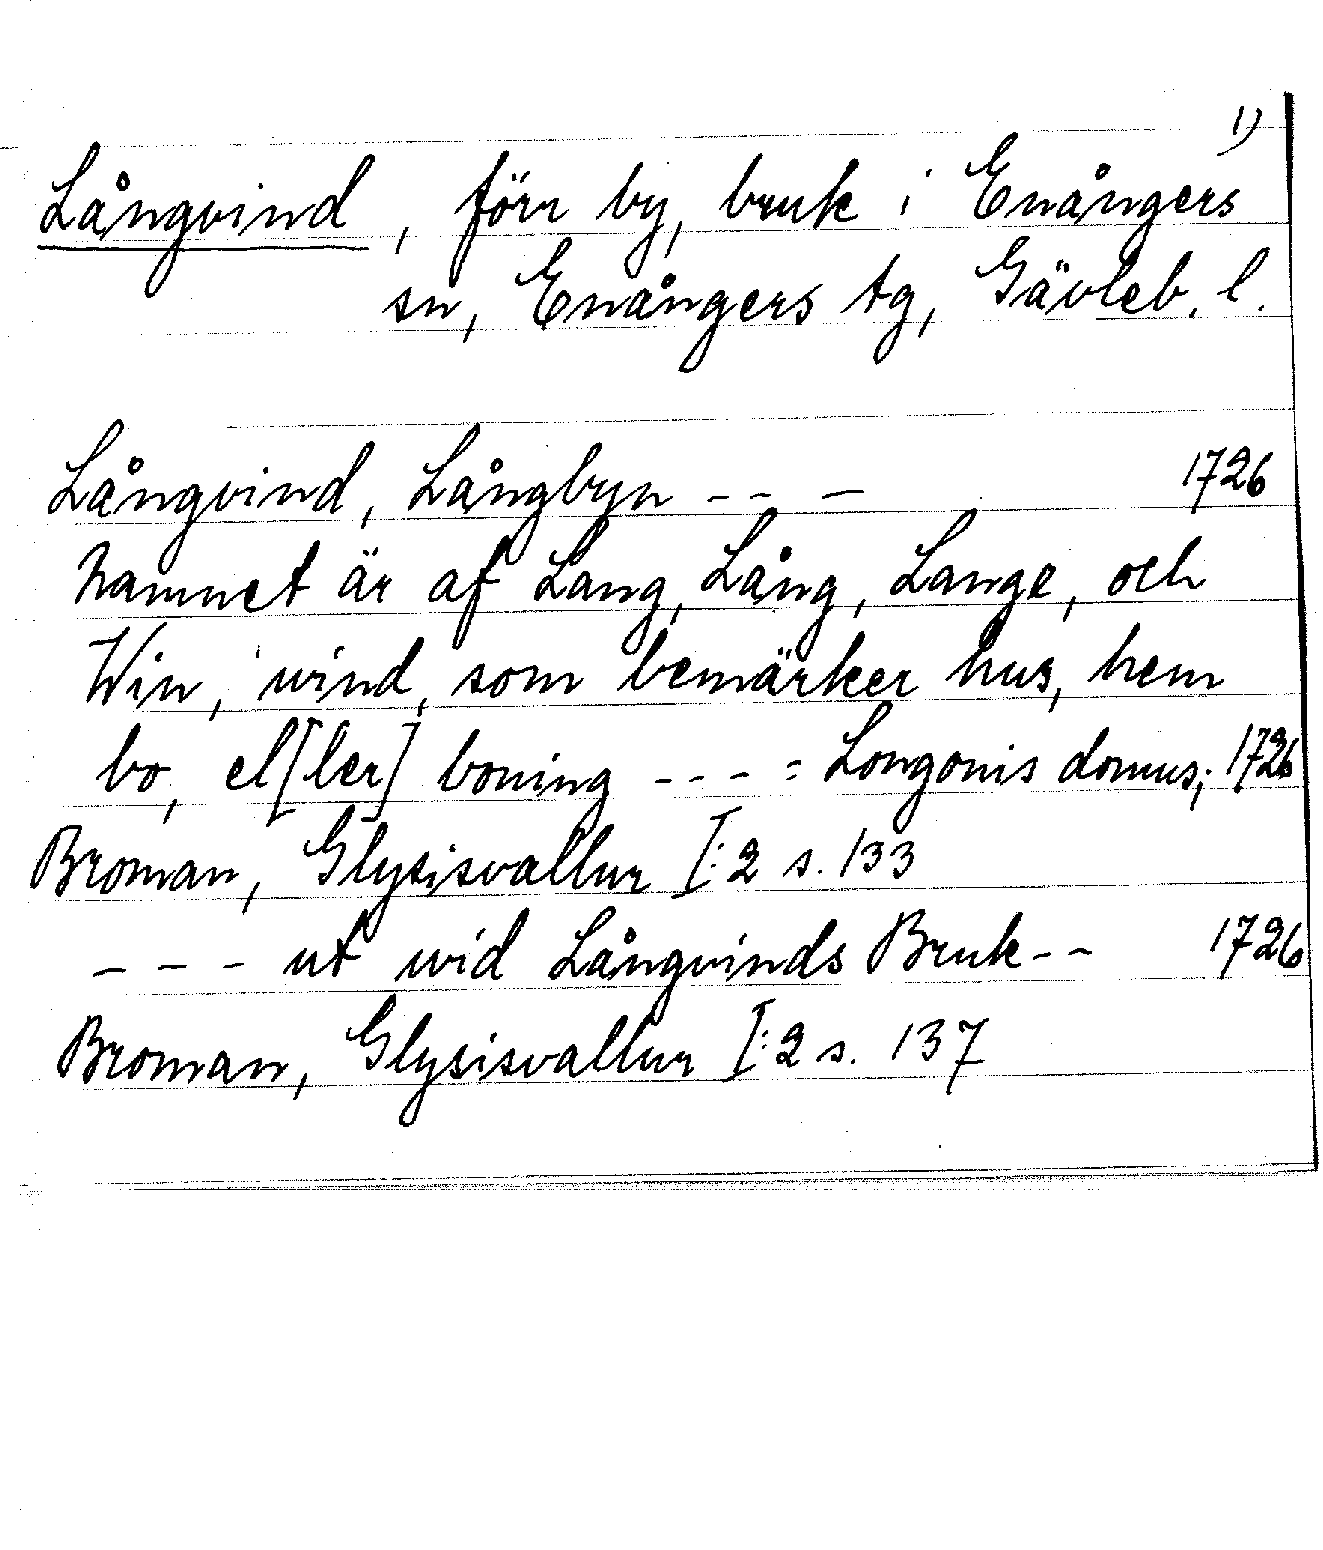 1)
Långvind, förr by, bruk i Enångers
sn, Enångers tg, Gävleb. l.
Långvind, Långbyn - - — 1726
namnet är af Lang, Lång, Lange, och
Win, wind, som bemärker hus, hem
bo, el[ler] boning - - - - = Longonis domus; 1726
Broman, Glysisvallur I:2 s. 133
- - - ut wid Långvinds Bruk - - 1726
Broman, Glysisvallur I:2 s. 137